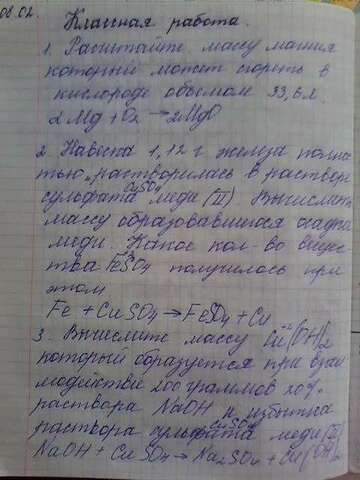 08.02.
Классная работа.
1. Расчитайте массу магния
который может сгореть в
кислороде объемом 33,6 л.
2Mg + O2 → 2MgO
2. Навеска 1,12 г железа полнос
тью растворилась в растворе
сульфата меди (II) CuSO4 Вычислить
массу образовавшегося осадка
меди. Какое кол-во вещес
тва FeSO4 получилось при
этом
Fe + CuSO4 → FeSO4 + Cu
3. Вычислите массу Cu(OH)2
который образуется при взаи
модействие 200 граммов 20%
раствора NaOH и избытка
раствора сульфата меди (II) CuSO4
NaOH + CuSO4 → Na2SO4 + Cu(OH)2